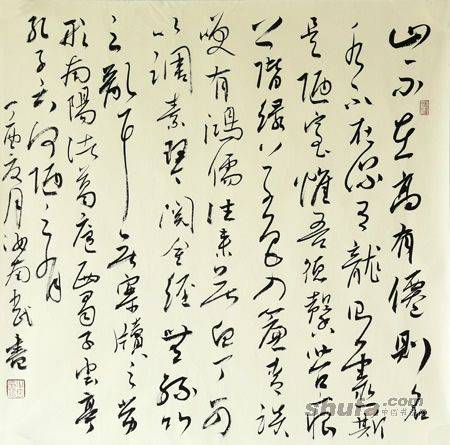 山不在高有僊則名
水不在深有龍則靈斯
是陋室惟吾德馨苔痕
上階緑草色入簾青談
咲有鴻儒往来無白丁可
以調素琴閲金經無絲竹
之亂耳無案牘之勞
形南陽諸葛廬西蜀子雲亭
孔子云何陋之有
丁酉夏月汝南書
shufa.com